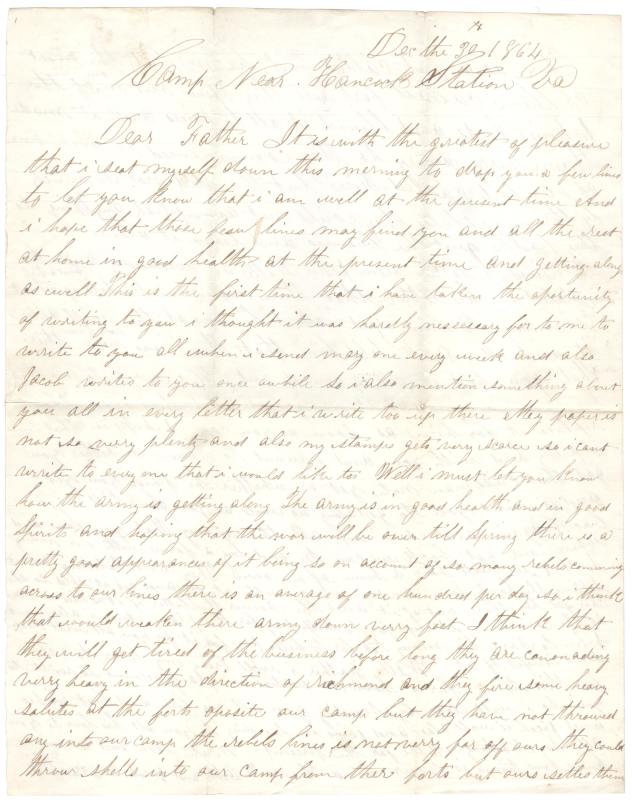 Dec the 30th 1864
Camp Near. Hancock Station Va
Dear Father It is with the greatest of pleasure
that i seat myself down this morning to drop you a few lines
to let you know that i am well at the present time And
i hope that those few lines may find you and all the rest
at home in good health at the present time and getting along
as well This is the first time that i have taken the oportunity
of writing to you i thought it was hardly nessessary for to me to
write to you all when i send may one every week and also
Jacob writes to you once awhile so i also mention something about
you all in every letter that i write too up there My paper is
not so verry plenty and also my stamps gets verry scarce so i cant
write to every one that i would like to Well i must let you know
how the army is getting along The army is in good health and in good
Spirits and hoping that the war will be over till Spring there is a
pretty good appearances of it being so on account of so many rebels comming
across to our lines there is an average of one hundred per day so i think
that would weaken there army down verry fast I think that
they will get tired of the business before long they are cannonading
verry heavy in the direction of richmond and they fire some heavy
salutes at the forts oposite our camp but they have not throwed
any into our camp the rebels lines is not verry far off ours they could
throw shells into our camp from ther forts but ours settles them